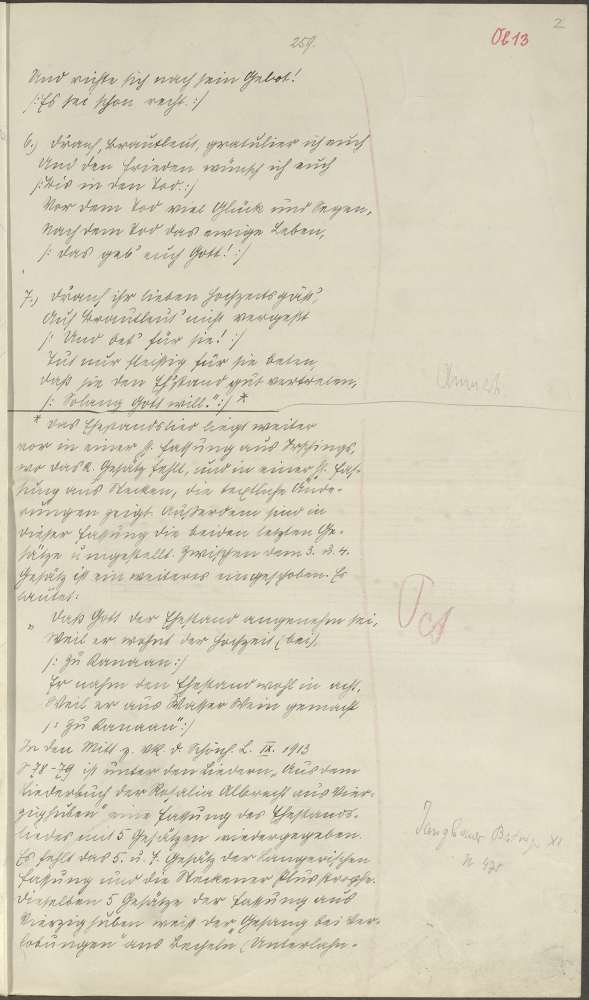 2
259.
Ob 13
Und richte sich nach sein Gebot!
/:Es sei schon recht.:/
6.) Drauf, Brautleut, gratulier ich euch
Und den Frieden wünsch ich euch
/:Bis in den Tod.:/
Vor dem Tod viel Glück und Segen,
Nach dem Tod das ewige Leben,
/: Das geb' euch Gott! :/
7.) Drauf ihr lieben Hochzeitsgäst',
Auf Brautleut' nicht vergeßt
/: Und bet' für sie! :/
Tut nur fleißig für sie beten,
Daß sie den Eh'stand gut vertreten,
/: Solang Gott will.":/ *
* Das Ehestandslied liegt weiter
vor in einer h. Fassung aus
wo das 2. Gesätz fehlt, und in einer h. Fas-
sung aus Stecken, die textliche Ände-
rungen zeigt. Außerdem sind in
dieser Fassung die beiden letzten Ge-
sätze umgestellt. Zwischen dem 3. u. 4.
Gesätz ist ein weiteres eingeschoben. Es
lautet:
„ Daß Gott der Ehestand angenehm sei,
Weil er wohnt der Hochzeit bei
/: Zu Kanaan :/
Er nahm den Ehestand wohl in acht,
Weil er aus Wasser Wein gemacht
/: Zu Kanaan":/
In den Mitt. z. Vk. d. Schönh. L. IX. 1913
S 78-79 ist unter den Liedern „Aus dem
Liederbuch der Rosalia Albrecht aus Vier-
zighuben" eine Fassung des Ehestands-
liedes mit 5 Gesätzen wiedergegeben.
Es fehlt das 5. u. 7. Gesätz der
Fassung und die Steckener Plusstrophe.
Dieselben 5 Gesätze der Fassung aus
Vierzighuben weist der „Gesang bei Ver-
lobungen" aus Becheln (Unterlahn-
XI